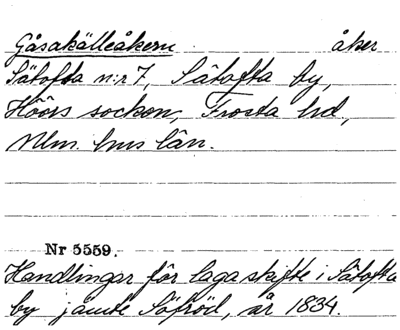 Gåsakälleåkern åker
Sätofta n:r 7, Sätofta by,
Höörs socken, Frosta hd,
Mlm. hus län.
Nr 5559.
Handlingar för laga skifte i Sätofta
by jämte Söfröd, år 1834.